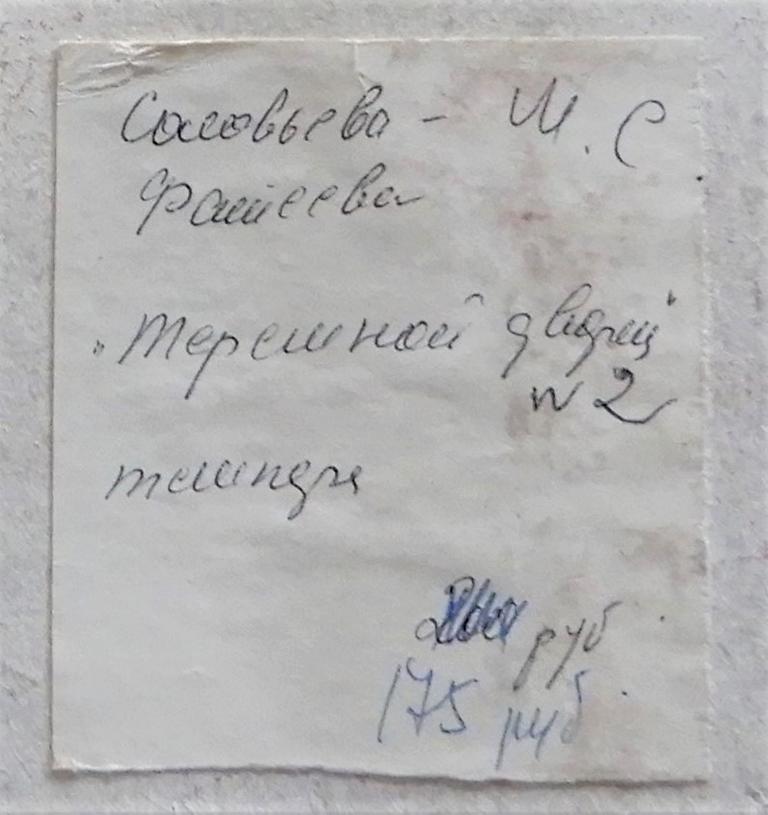 Соловьева - И. С
Фатеева
"Теремной дворец"
N 2
темпера
руб.
175 руб.